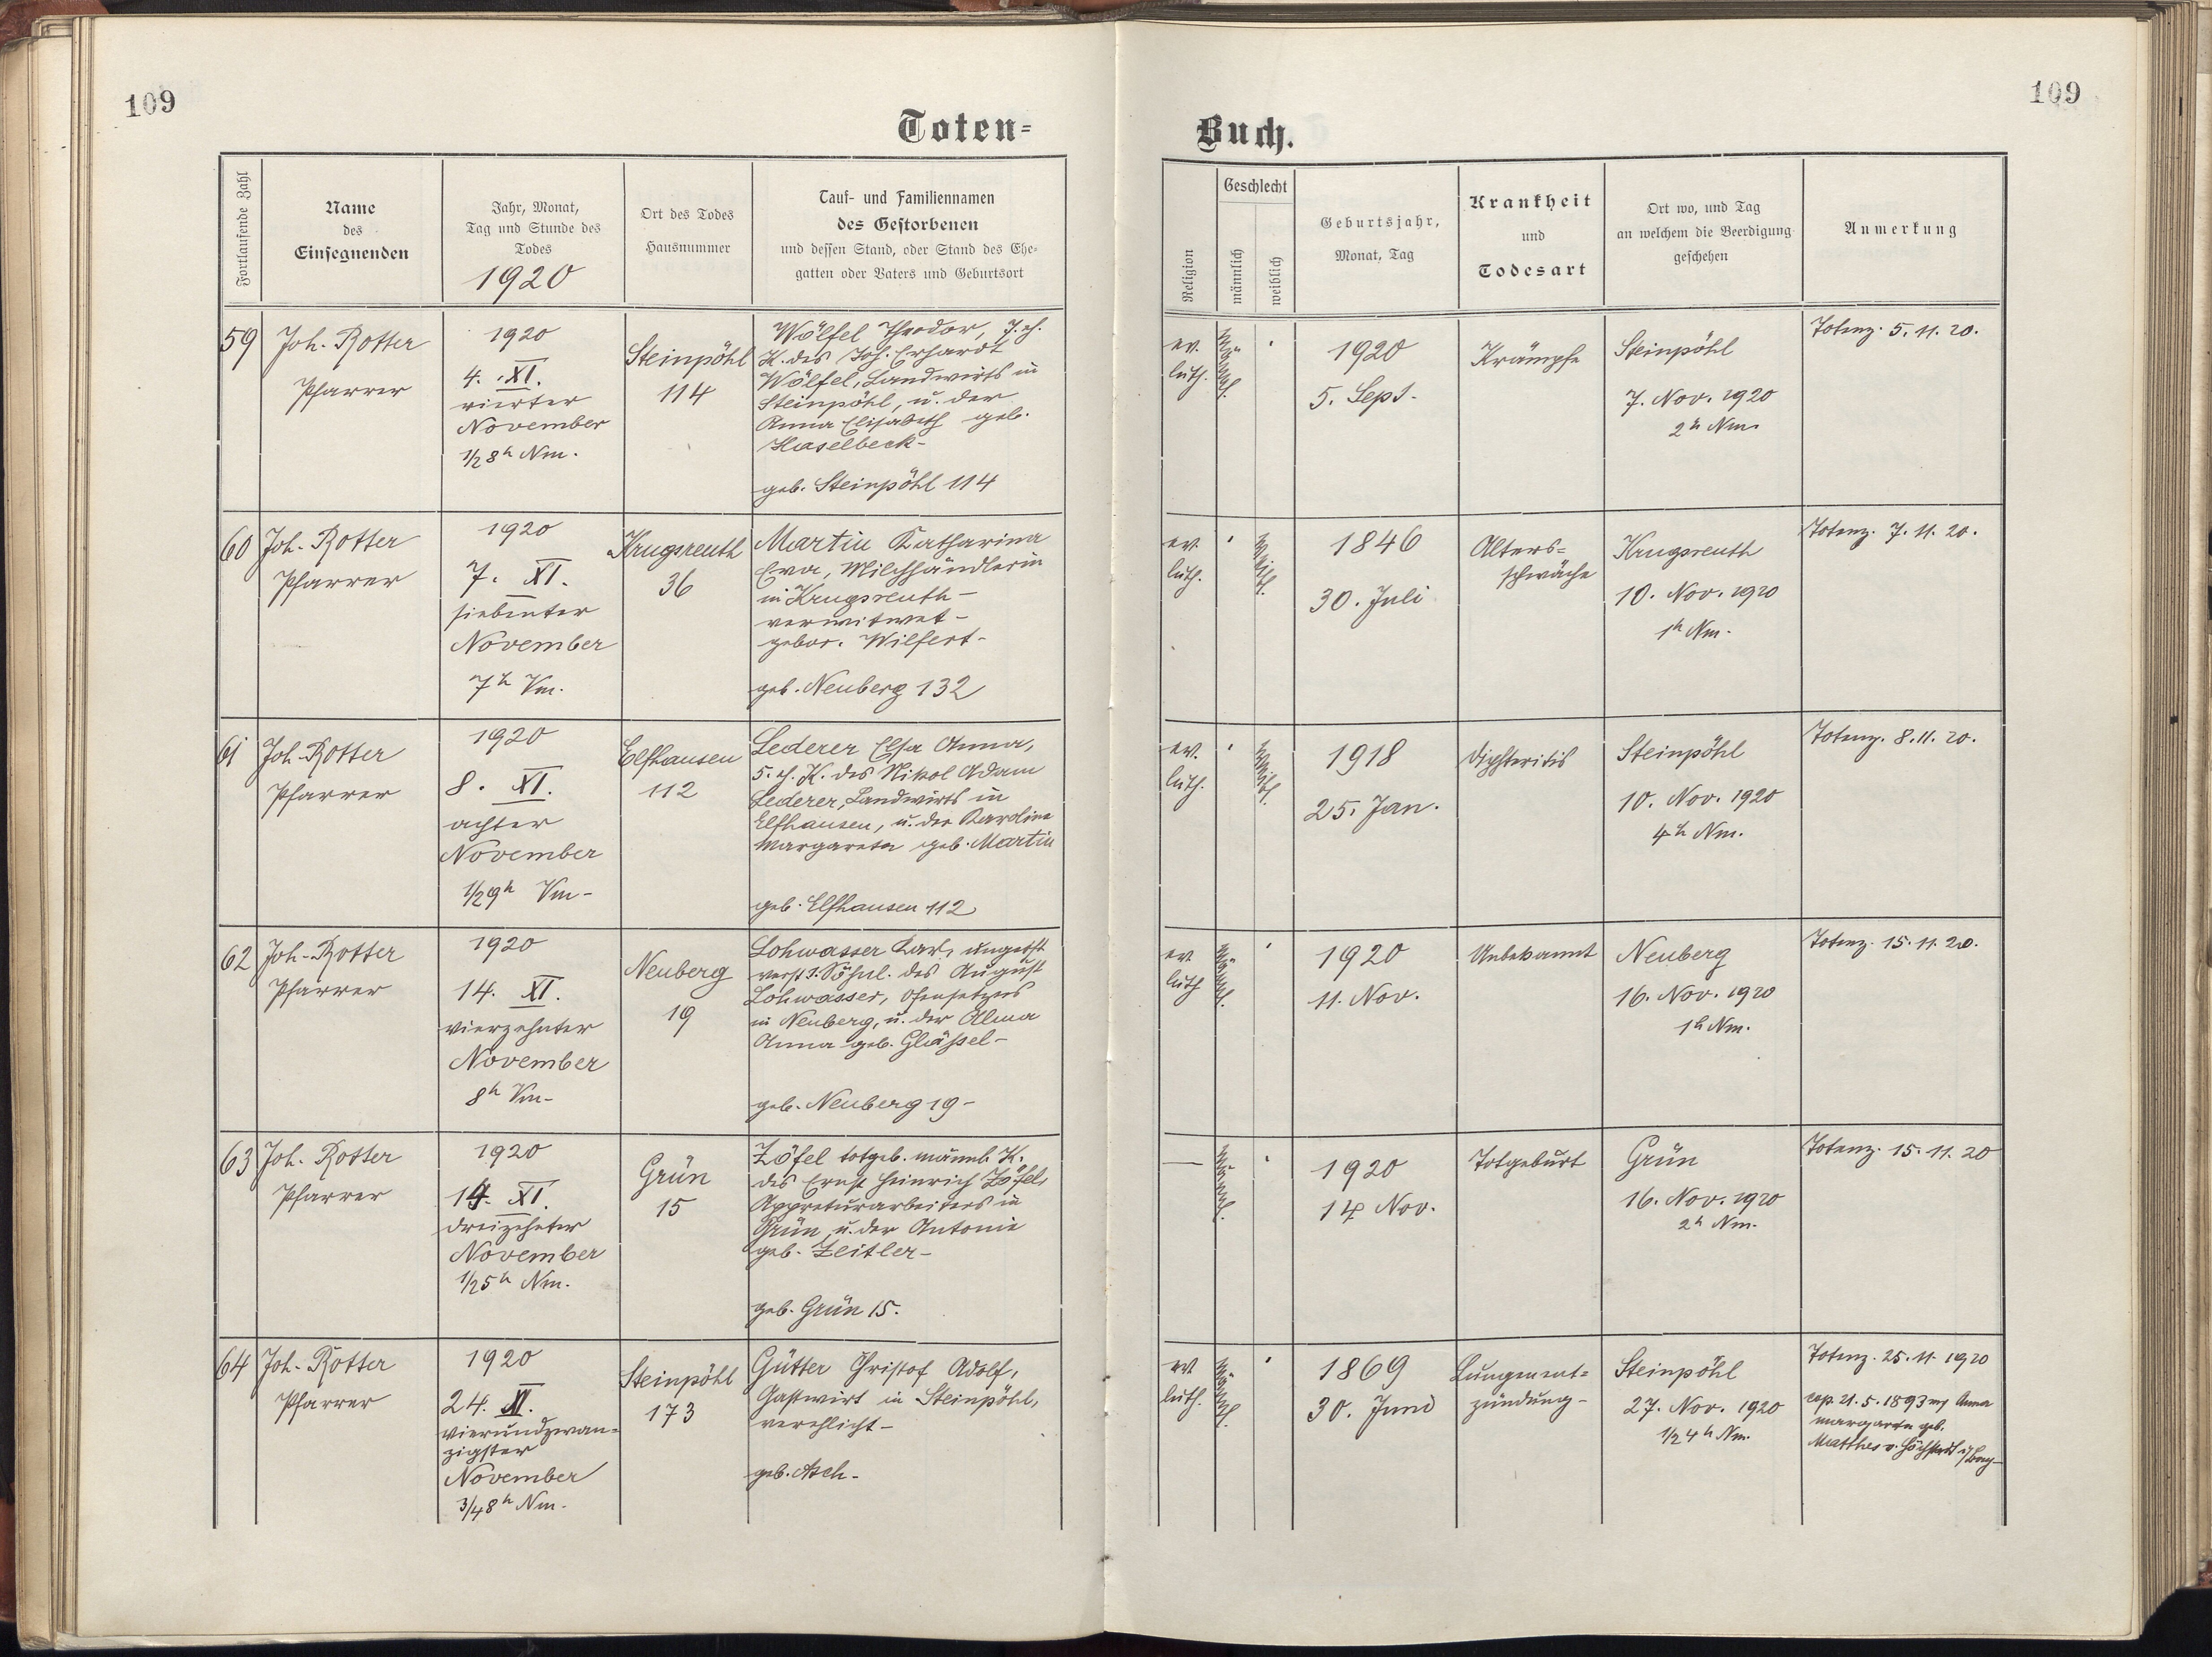 109
109
Toten=
Buch.
Fortlaufende Zahl
Name
des
Einsegnenden
Jahr, Monat,
Tag und Stunde des
Todes
1920
Ort des Todes
Hausnummer
Tauf- und Familiennamen
des Gestorbenen
und dessen Stand, oder Stand des Ehe-
gatten oder Vaters und Geburtsort
Religion
Geschlecht
männlich
weiblich
Geburtsjahr,
Monat, Tag
Krankheit
und
Todesart
Ort wo, und Tag
an welchem die Beerdigung
geschehen
Anmerkung
59
Joh. Rotter
Pfarrer
1920
4. XI.
vierter
November
1/2 8h Nm.
Steinpöhl
114
Wölfel Theodor, 7. eh.
K. des Joh. Erhardt
Wölfel, Landwirts in
Steinpöhl, u. der
Anna Elisabeth geb.
Haselbeck-
geb. Steinpöhl 114
ev.
luth.
männl.
1920
5. Sept.
Krämpfe
Steinpöhl
7. Nov. 1920
2h Nm.
Totenz. 5. 11. 20.
60
Joh. Rotter
Pfarrer
1920
7. XI.
siebenter
November
7h Vm.
Krugsreuth
36
Martin Katharina
Eva, Milchhändlerin
in Krugsreuth-
verwitwet-
gebor. Wilfert-
geb. Neuberg 132
ev.
luth.
weibl.
1846
30. Juli
Alters=
schwäche
Krugsreuth
10. Nov. 1920
1h Nm.
Totenz. 7. 11. 20.
61
Joh. Rotter
Pfarrer
1920
8. XI.
achter
November
1/2 9h Vm-
Elfhausen
112
Lederer Elsa Anna,
5. eh. K. des Nikol Adam
Lederer, Landwirts in
Elfhausen, u. der Karoline
Margareta geb. Martin
geb. Elfhausen 112
ev.
luth.
weibl.
1918
25. Jan.
Diphteritis
Steinpöhl
10. Nov. 1920
4h Nm.
Totenz. 8. 11. 20.
62
Joh. Rotter
Pfarrer
1920
14. XI.
vierzehnter
November
8h Vm-
Neuberg
19
Lohwasser Karl, ungetft
verst. Söhnl. des August
Lohwasser, Ofensetzers
in Neuberg, u. der Alma
Anna geb. Gläßel-
geb. Neuberg 19-
ev.
luth
männl.
1920
11. Nov.
Unbekannt
Neuberg
16. Nov. 1920
1h Nm.
Totenz. 15. 11. 20.
63
Joh. Rotter
Pfarrer
1920
14. XI.
dreizehnter
November
1/2 5h Nm.
Grün
15
Zöfel totgeb. männl. K.
des Ernst Heinrich Zöfel,
Appreturarbeiters in
Grün, u. der Antonie
geb. Zeitler-
geb. Grün 15.
—
männl.
1920
14 Nov.
Totgeburt
Grün
16. Nov. 1920
2h Nm.
Totenz. 15. 11. 20
64
Joh. Rotter
Pfarrer
1920
24. XI.
vierundzwan=
zigster
November
3/4 8h Nm.
Steinpöhl
173
Gütter Christof Adolf,
Gastwirt in Steinpöhl,
verehlicht-
geb. Asch-
ev.
luth.
männl.
1869
30. Juni
Lungenent=
zündung-
Steinpöhl
27. Nov. 1920
1/2 4h Nm.
Totenz. 25. 11. 1920
cop. 21. 5. 1893 m/ Anna
Margareta geb.
Matthes v.